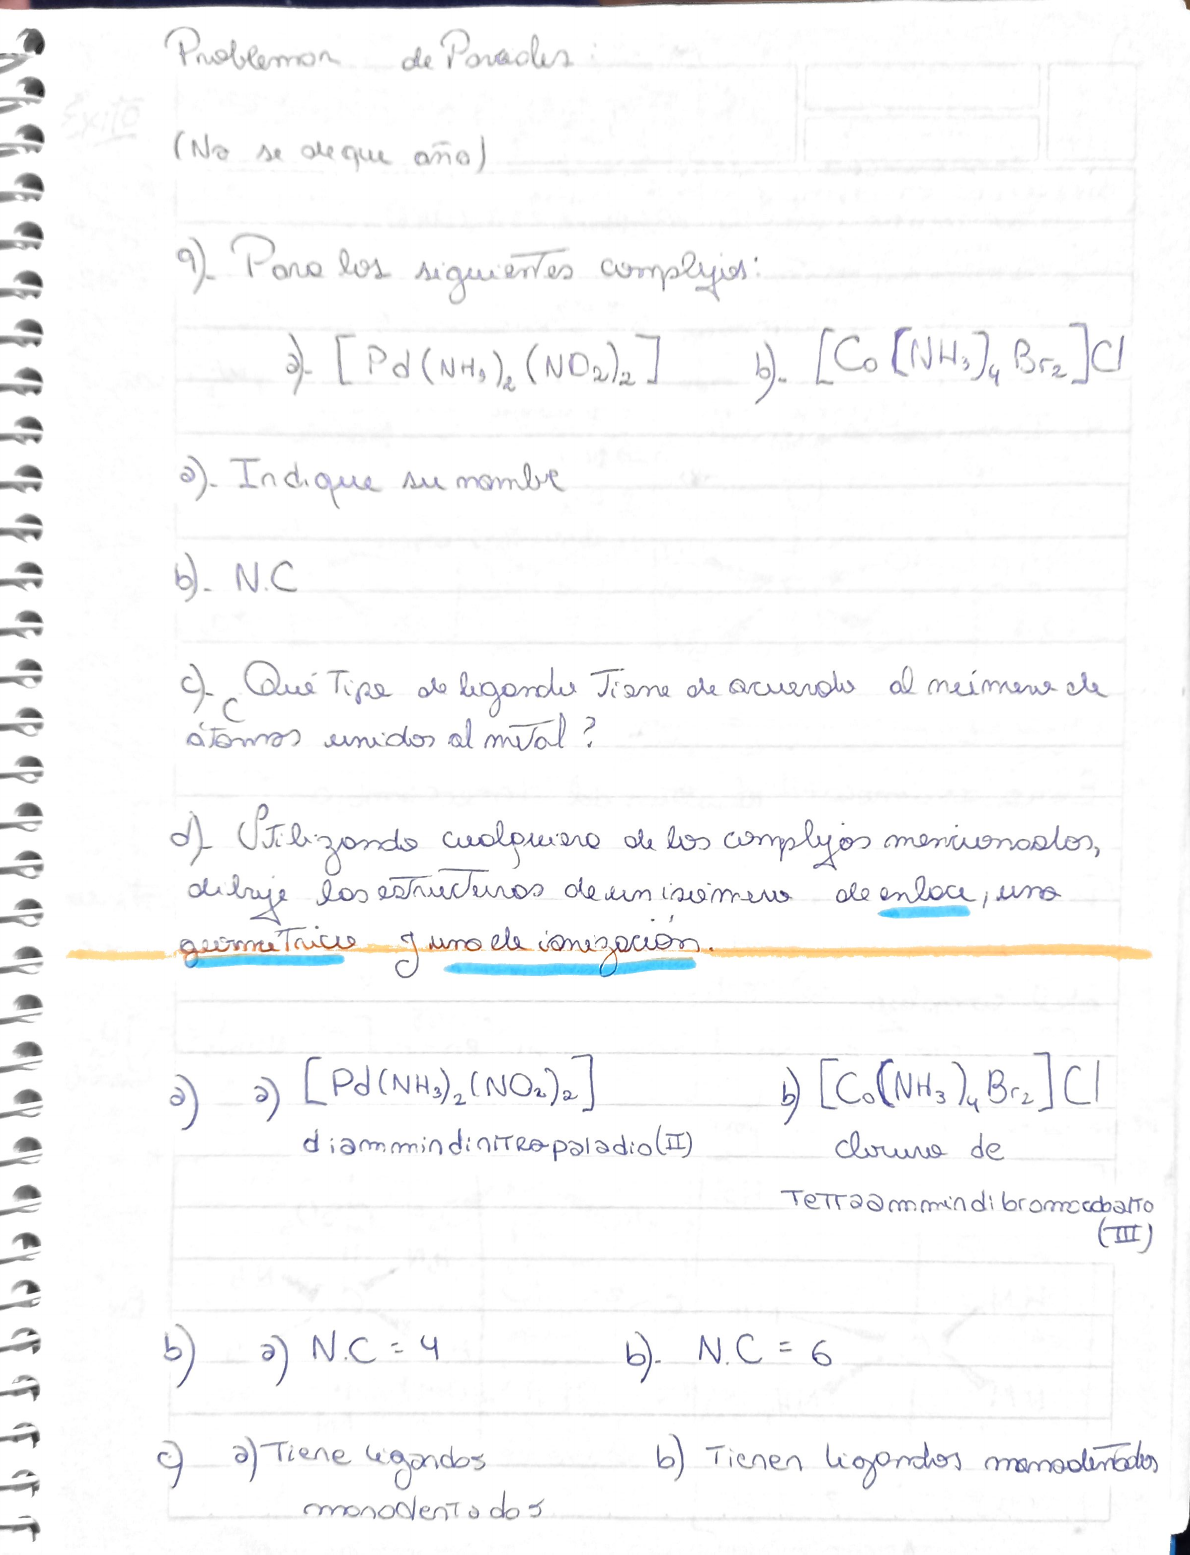 Problemas de Paredes:
(No se de que año)
9)- Para los siguientes complejos:
a)- [Pd(NH₃)₂(NO₂)₂] b)- [Co[NH₃)₄Br₂]Cl
a)- Indique su nombre
b)- N.C
c)- ¿Qué Tipo de ligando Tiene de acuerdo al número de
átomos unidos al metal?
d)- Utilizando cualquiera de los complejos mencionados,
dibuje las estructuras de un isómero de enlace, uno
geométrico y uno de ionización.
a) a) [Pd(NH₃)₂(NO₂)₂] b) [Co(NH₃)₄Br₂]Cl
diammindinitropaladio(II) cloruro de
Tetraammindibromocobalto
(III)
b) a) N.C = 4 b)- N.C = 6
c) a) Tiene ligandos b) Tienen ligandos monodentados
monodentados